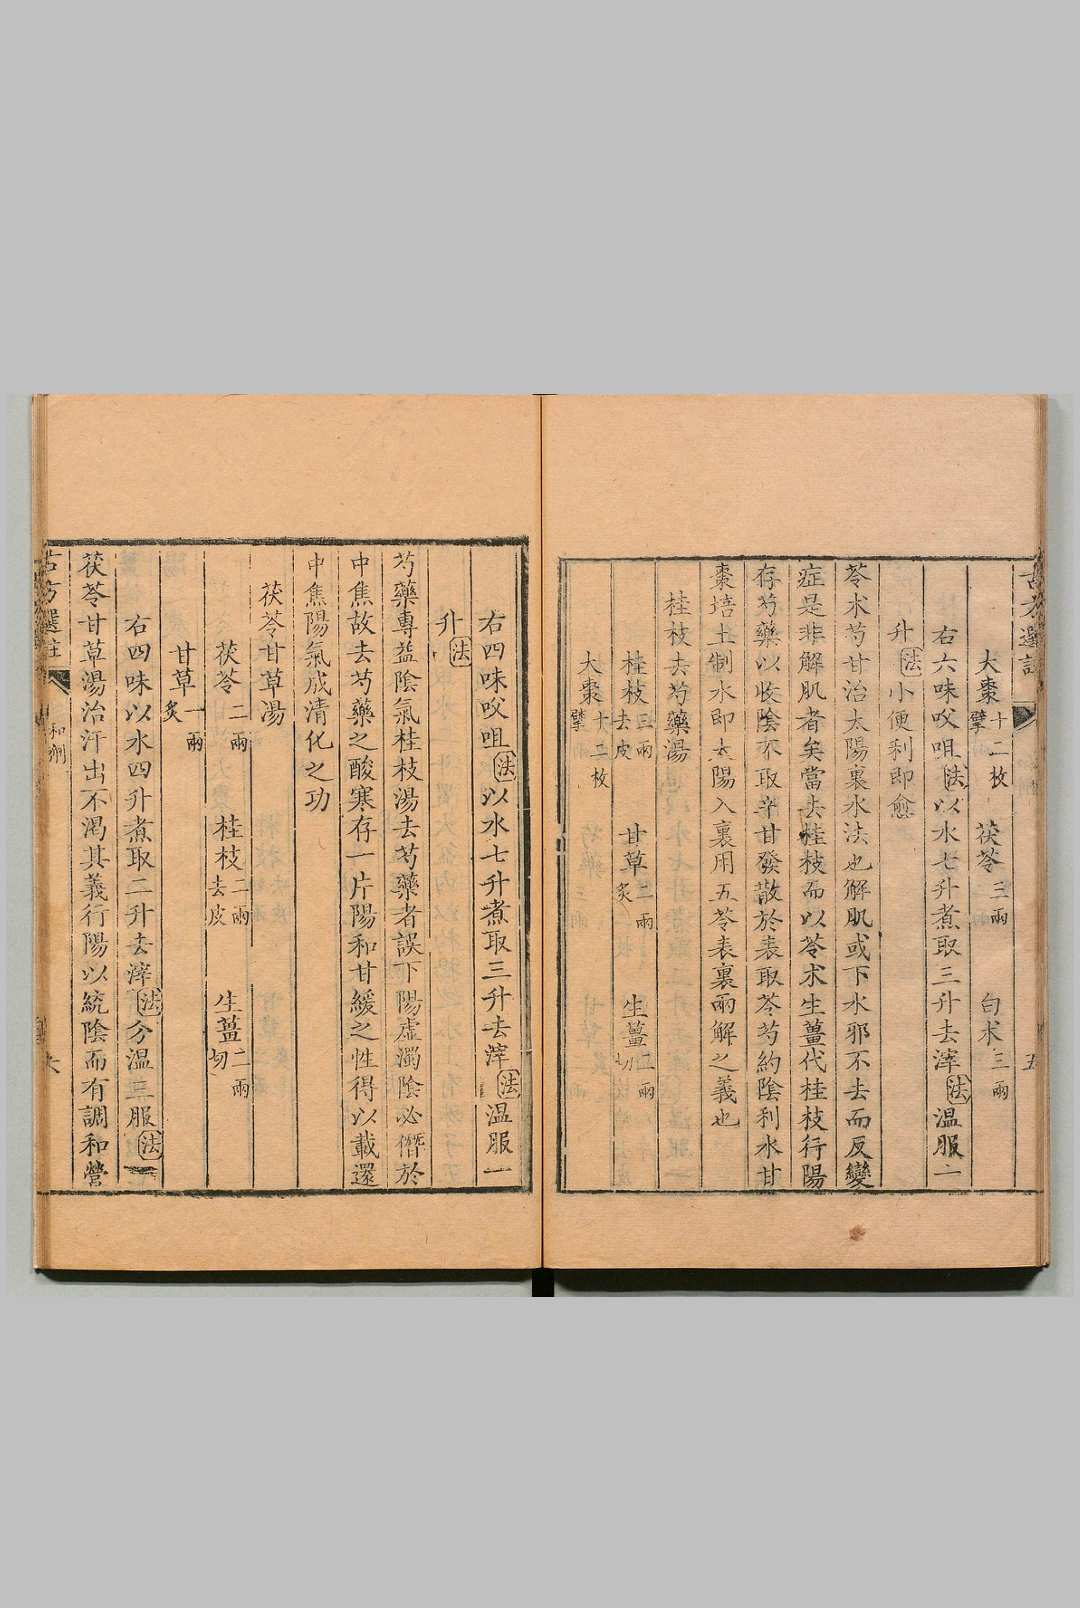 古方選註
五
大棗十二枚擘 茯苓三兩 白朮三兩
右六味㕮咀法以水七升煮取三升去滓法溫服一
升法小便利即愈
苓朮芍甘治太陽裏水法也解肌或下水邪不去而反變
症是非解肌者矣當去桂枝而以苓朮生薑代桂枝行陽
存芍藥以收陰不取辛甘發散於表取苓芍約陰利水甘
棗培土制水即太陽入裏用五苓表裏兩解之義也
桂枝去芍藥湯
桂枝三兩去皮 甘草二兩炙 生薑三兩切
大棗十二枚擘
右四味㕮咀法以水七升煮取三升去滓法溫服一
升法
芍藥專益陰氣桂枝湯去芍藥者誤下陽虛濁陰必僭於
中焦故去芍藥之酸寒存一片陽和甘緩之性得以載還
中焦陽氣成清化之功
茯苓甘草湯
茯苓二兩 桂枝二兩去皮 生薑二兩切
甘草一兩炙
右四味以水四升煮取二升去滓法分溫三服法
茯苓甘草湯治汗出不渴其義行陽以統陰而有調和營
古方選註
和劑
六